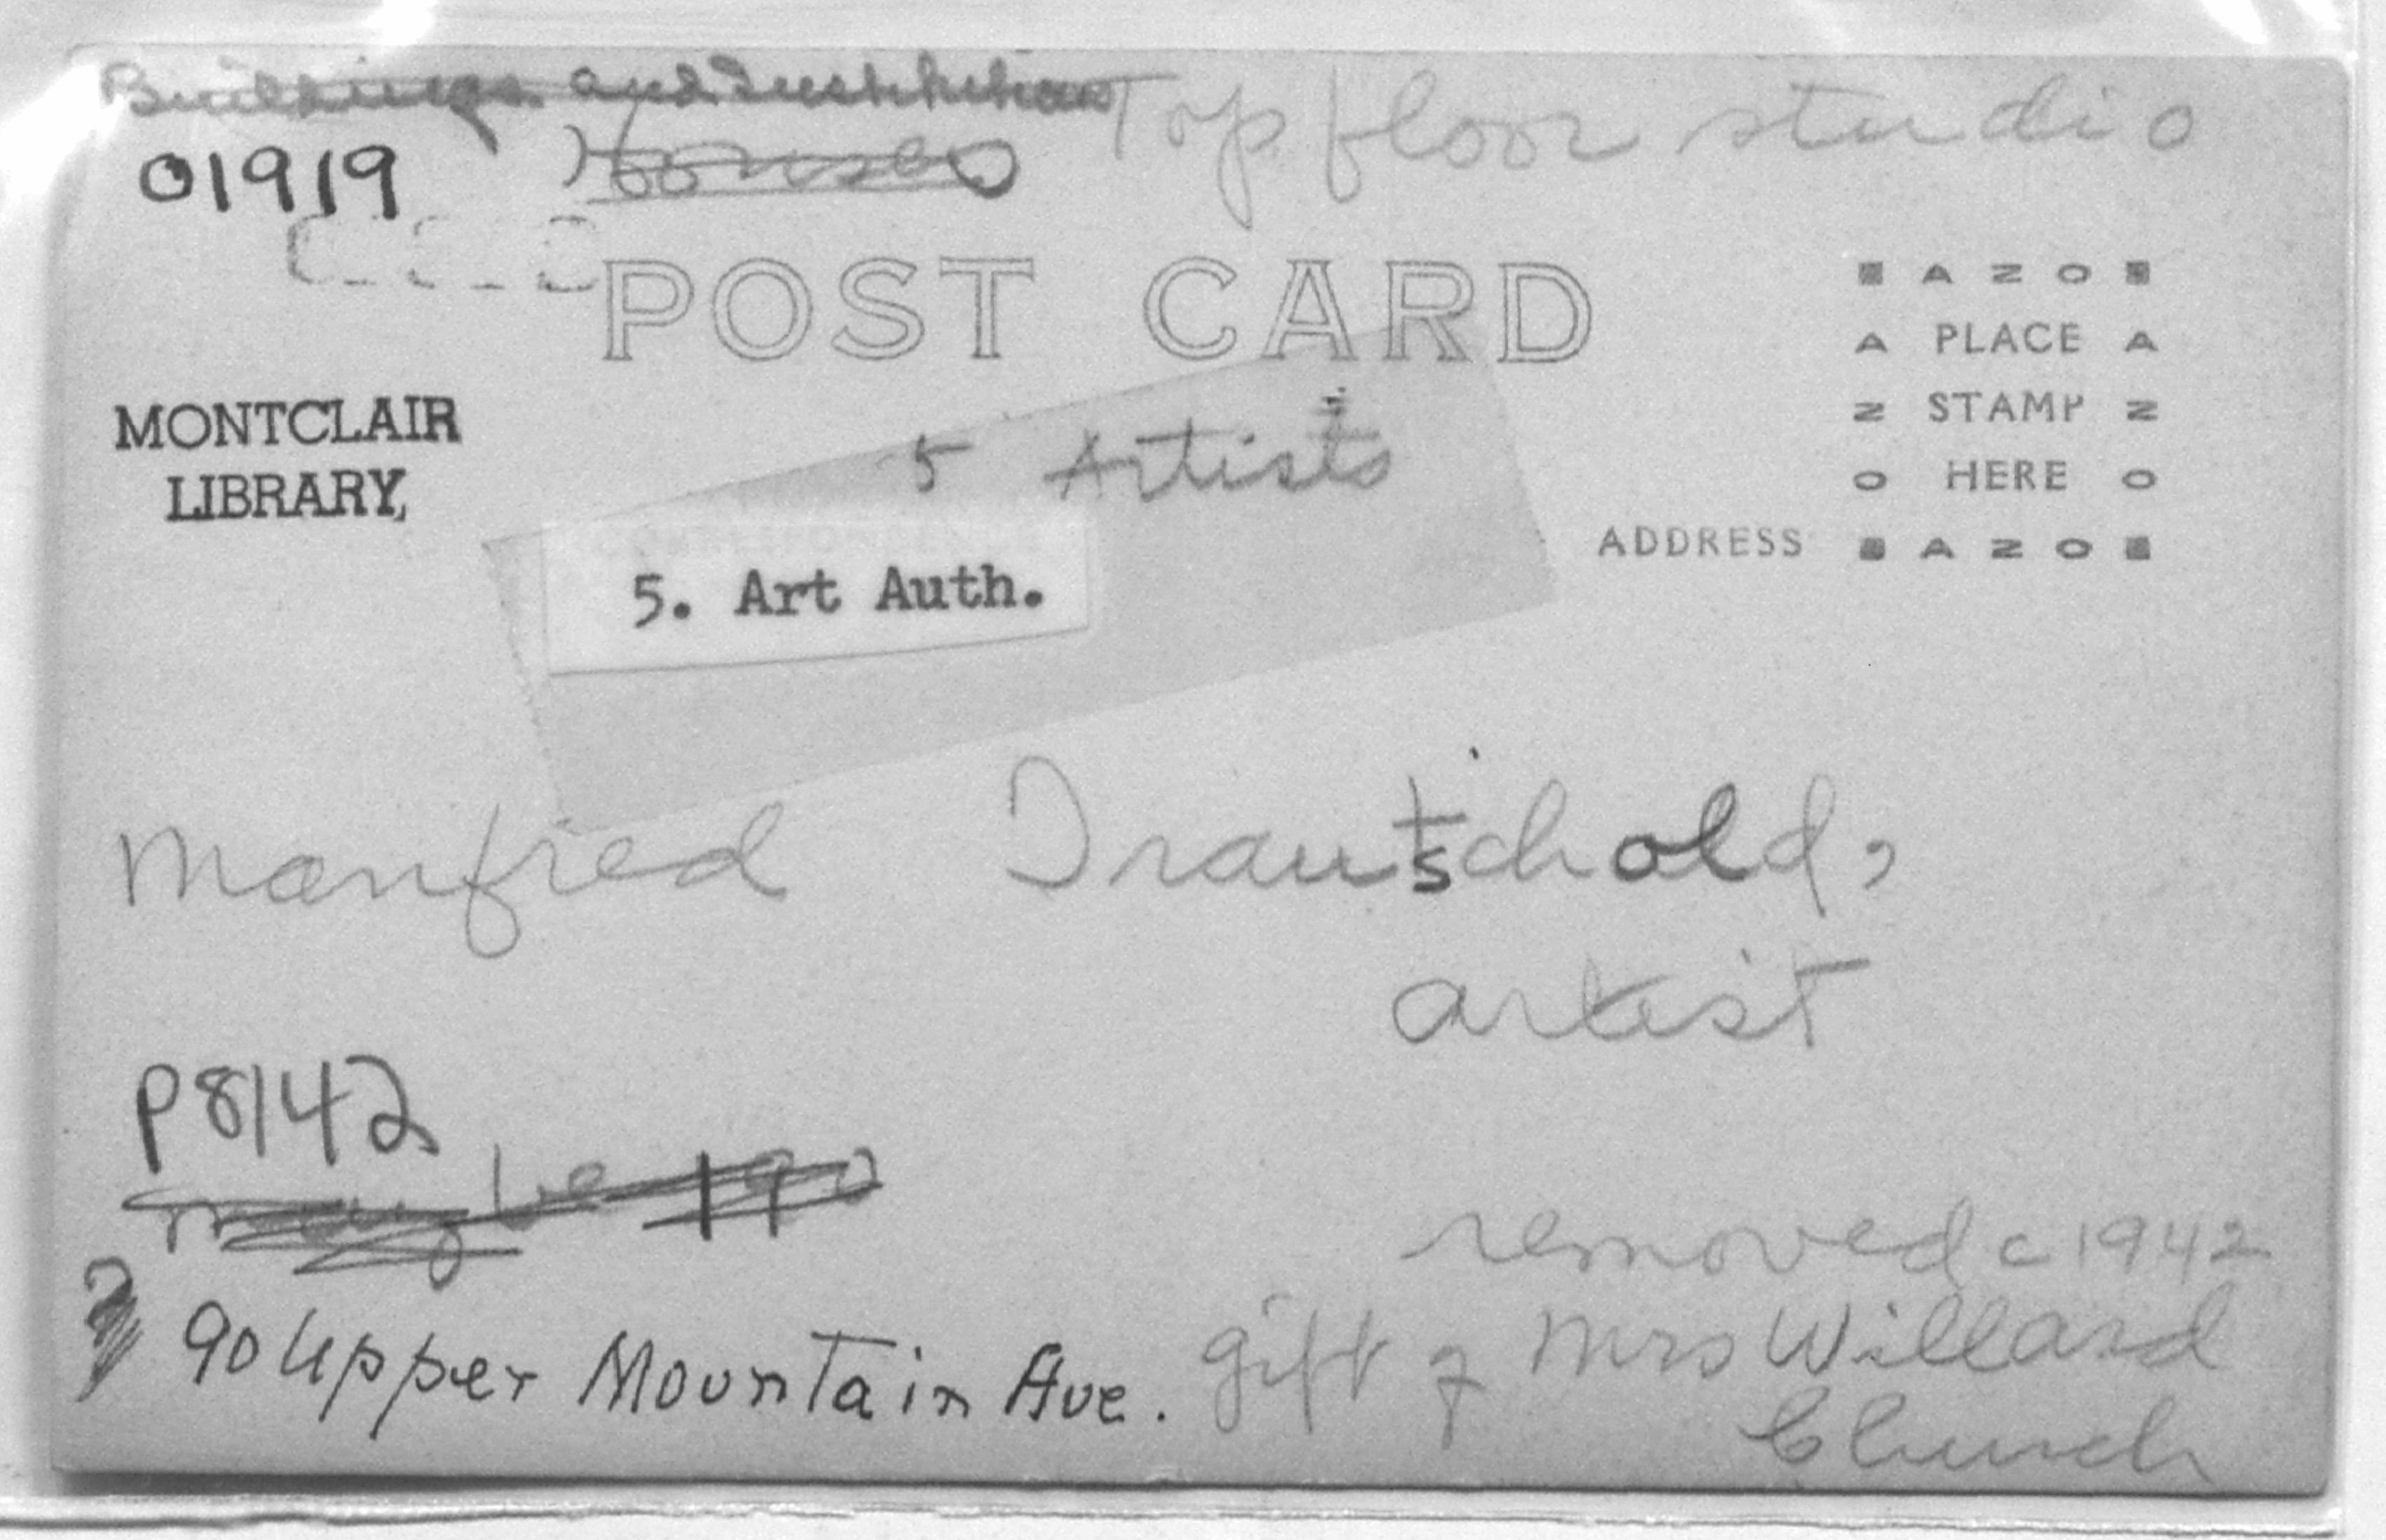 Buildings and Institutions Top floor studio
01919 Houses
POST CARD
AZO
A PLACE A
Z STAMP Z
O HERE O
AZO
ADDRESS
MONTCLAIR
LIBRARY,
5 Artists
5. Art Auth.
Manfred Trautschold,
artist
P8142
may be
removed c 1942
? 90 Upper Mountain Ave. gift of Mrs Willard
Church